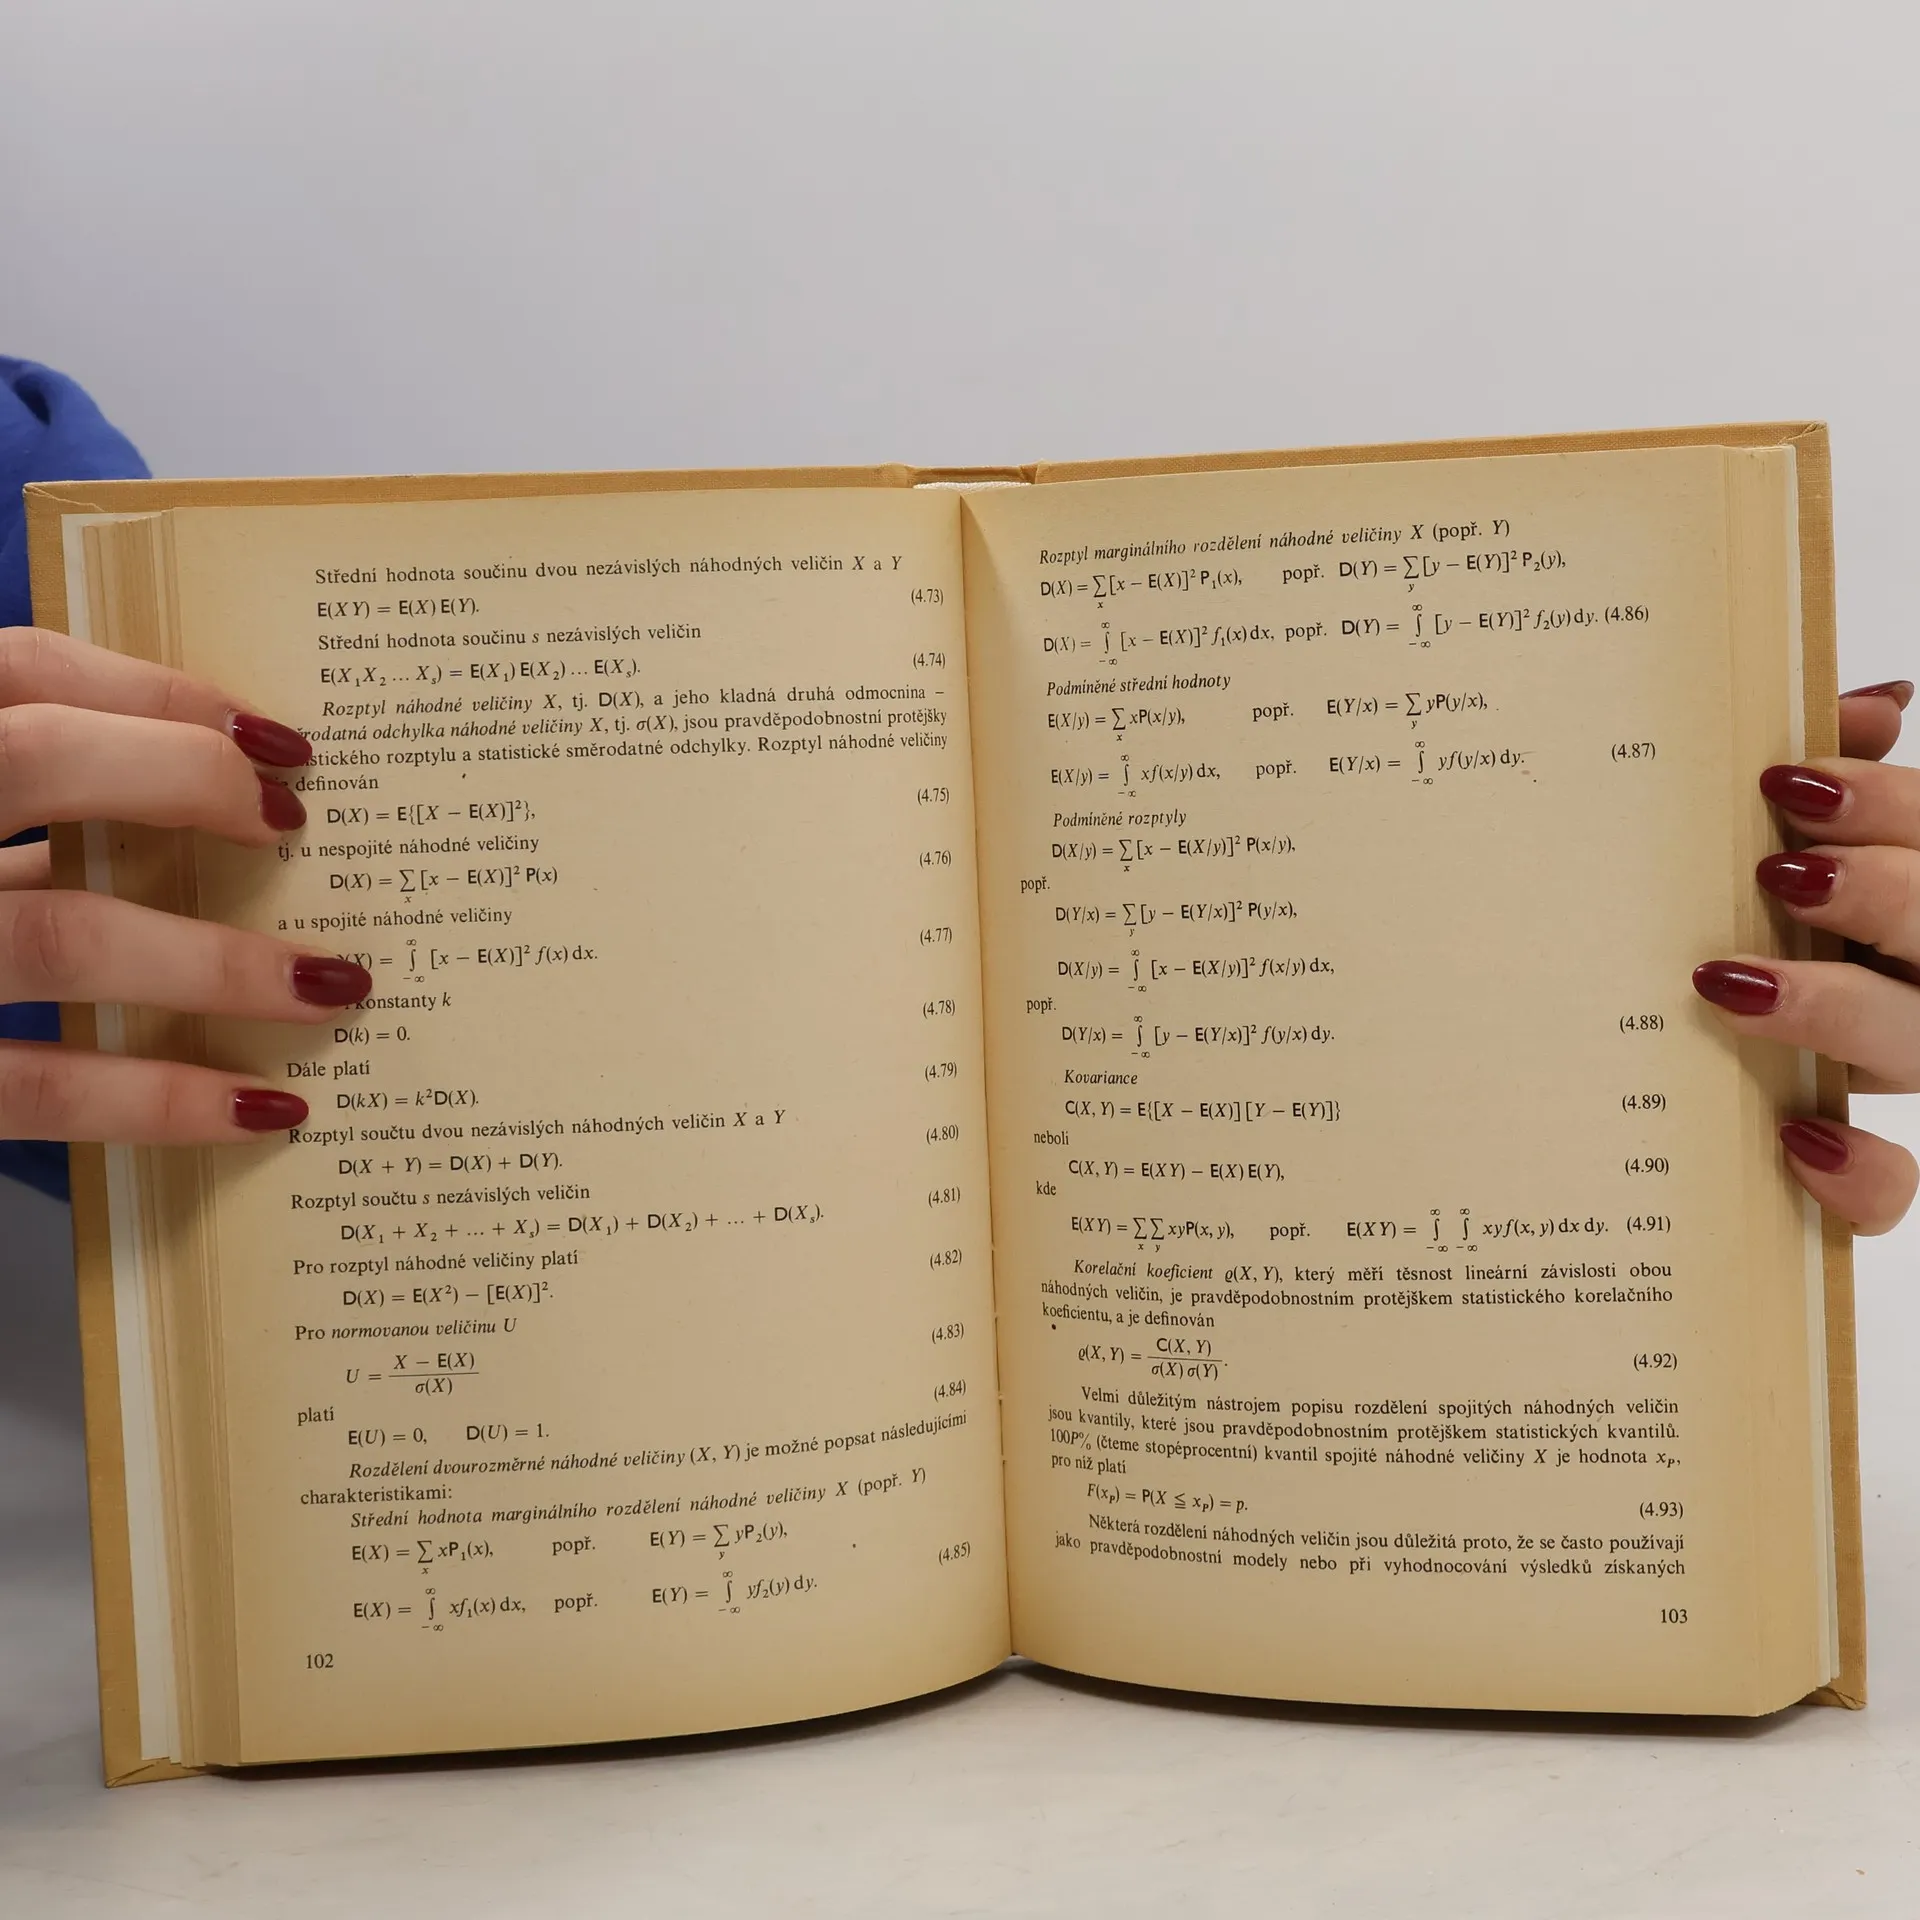 Střední hodnota součinu dvou nezávislých náhodných veličin X a Y
E(XY) = E(X) E(Y). (4.73)
Střední hodnota součinu s nezávislých veličin
E(X₁X₂ ... Xₛ) = E(X₁) E(X₂) ... E(Xₛ). (4.74)
Rozptyl náhodné veličiny X, tj. D(X), a jeho kladná druhá odmocnina –
odchylka náhodné veličiny X, tj. σ(X), jsou pravděpodobnostní protějšky
rozptylu a statistické směrodatné odchylky. Rozptyl náhodné veličiny
definován
D(X) = E{[X − E(X)]²}, (4.75)
tj. u nespojité náhodné veličiny
D(X) = ∑ₓ [x − E(X)]² P(x) (4.76)
a u spojité náhodné veličiny
(X) = ∫_{−∞}^{∞} [x − E(X)]² f(x) dx. (4.77)
konstanty k
D(k) = 0. (4.78)
Dále platí
D(kX) = k²D(X). (4.79)
Rozptyl součtu dvou nezávislých náhodných veličin X a Y
D(X + Y) = D(X) + D(Y). (4.80)
Rozptyl součtu s nezávislých veličin
D(X₁ + X₂ + ... + Xₛ) = D(X₁) + D(X₂) + ... + D(Xₛ). (4.81)
Pro rozptyl náhodné veličiny platí
D(X) = E(X²) − [E(X)]². (4.82)
Pro normovanou veličinu U
U = (X − E(X)) / σ(X) (4.83)
platí
E(U) = 0, D(U) = 1. (4.84)
Rozdělení dvourozměrné náhodné veličiny (X, Y) je možné popsat následujícími
charakteristikami:
Střední hodnota marginálního rozdělení náhodné veličiny X (popř. Y)
E(X) = ∑ₓ xP₁(x), popř. E(Y) = ∑_y yP₂(y),
E(X) = ∫_{−∞}^{∞} xf₁(x) dx, popř. E(Y) = ∫_{−∞}^{∞} yf₂(y) dy. (4.85)
102
Rozptyl marginálního rozdělení náhodné veličiny X (popř. Y)
D(X) = ∑ₓ [x − E(X)]² P₁(x), popř. D(Y) = ∑_y [y − E(Y)]² P₂(y),
D(X) = ∫_{−∞}^{∞} [x − E(X)]² f₁(x) dx, popř. D(Y) = ∫_{−∞}^{∞} [y − E(Y)]² f₂(y) dy. (4.86)
Podmíněné střední hodnoty
E(X/y) = ∑ₓ xP(x/y), popř. E(Y/x) = ∑_y yP(y/x),
E(X/y) = ∫_{−∞}^{∞} xf(x/y) dx, popř. E(Y/x) = ∫_{−∞}^{∞} yf(y/x) dy. (4.87)
Podmíněné rozptyly
D(X/y) = ∑ₓ [x − E(X/y)]² P(x/y),
popř.
D(Y/x) = ∑_y [y − E(Y/x)]² P(y/x),
D(X/y) = ∫_{−∞}^{∞} [x − E(X/y)]² f(x/y) dx,
popř.
D(Y/x) = ∫_{−∞}^{∞} [y − E(Y/x)]² f(y/x) dy. (4.88)
Kovariance
C(X, Y) = E{[X − E(X)] [Y − E(Y)]} (4.89)
neboli
C(X, Y) = E(XY) − E(X) E(Y), (4.90)
kde
E(XY) = ∑ₓ ∑_y xyP(x, y), popř. E(XY) = ∫_{−∞}^{∞} ∫_{−∞}^{∞} xyf(x, y) dx dy. (4.91)
Korelační koeficient ϱ(X, Y), který měří těsnost lineární závislosti obou
náhodných veličin, je pravděpodobnostním protějškem statistického korelačního
koeficientu, a je definován
ϱ(X, Y) = C(X, Y) / σ(X) σ(Y). (4.92)
Velmi důležitým nástrojem popisu rozdělení spojitých náhodných veličin
jsou kvantily, které jsou pravděpodobnostním protějškem statistických kvantilů.
100P% (čteme stopéprocentní) kvantil spojité náhodné veličiny X je hodnota x_P,
pro niž platí
F(x_P) = P(X ≦ x_P) = p. (4.93)
Některá rozdělení náhodných veličin jsou důležitá proto, že se často používají
jako pravděpodobnostní modely nebo při vyhodnocování výsledků získaných
103